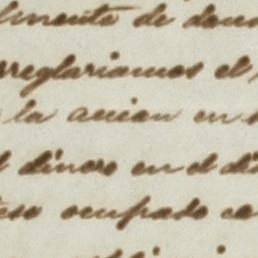 limente de
rreglariamos el
la accion en
dinero en el di
eso ocupado ca